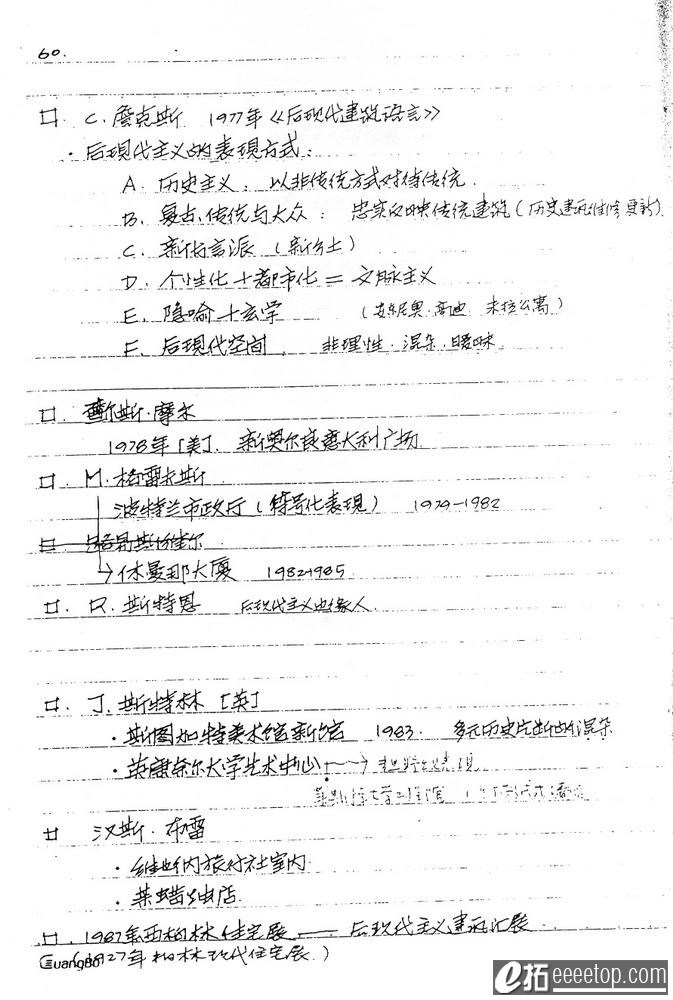 60.
C. 詹克斯 1977年《后现代建筑语言》
· 后现代主义的表現方式：
A. 历史主义：以非传统方式对待传统.
B. 复古.传统与大众：忠实反映传统建筑(历史建筑维修更新)
C. 新方言派 (新乡土)
D. 个性化+都市化=文脉主义
E. 隐喻+玄学 (安东尼奥·高迪 米拉公寓)
F. 后现代空间. 非理性·混杂·暧昧.
查尔斯·摩尔
1978年[美]. 新奥尔良意大利广场
M. 格雷夫斯
波特兰市政厅(符号化表現) 1979-1982
→休曼那大厦 1982-1985.
R. 斯特恩 后现代主义边缘人.
J. 斯特林 [英]
· 斯图加特美术馆新馆 1983. 多元历史片断的混杂
· 英康奈尔大学艺术中心
汉斯·布雷
· 维也纳旅行社室内.
· 莱蜡烛店.
1987年西柏林住宅展 — 后现代主义建筑汇展.
(1927年柏林现代住宅展.)
EuangBo
e拓 eeeetop.com